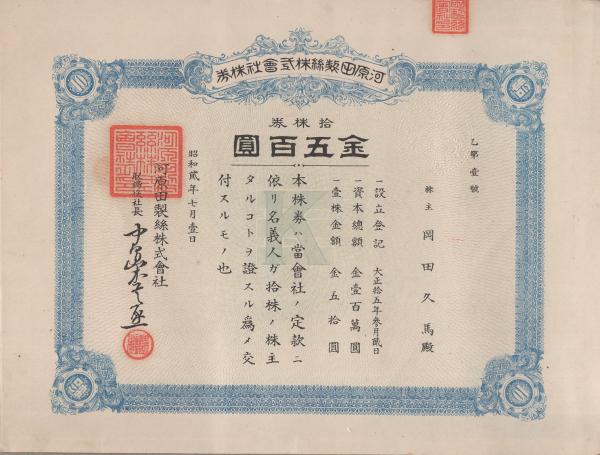 河原田製絲株式會社株券
拾株券
金五百圓
乙第壹號
株主 岡田久馬殿
一設立登記 大正拾五年參月貳日
一資本總額 金壹百萬圓
一壹株金額 金五拾圓
本株券ハ當會社ノ定款ニ
依リ名義人ガ拾株ノ株主
タルコトヲ證スル爲メ交
付スルモノ也
昭和貳年七月壹日
河原田製絲株式會社
取締役社長